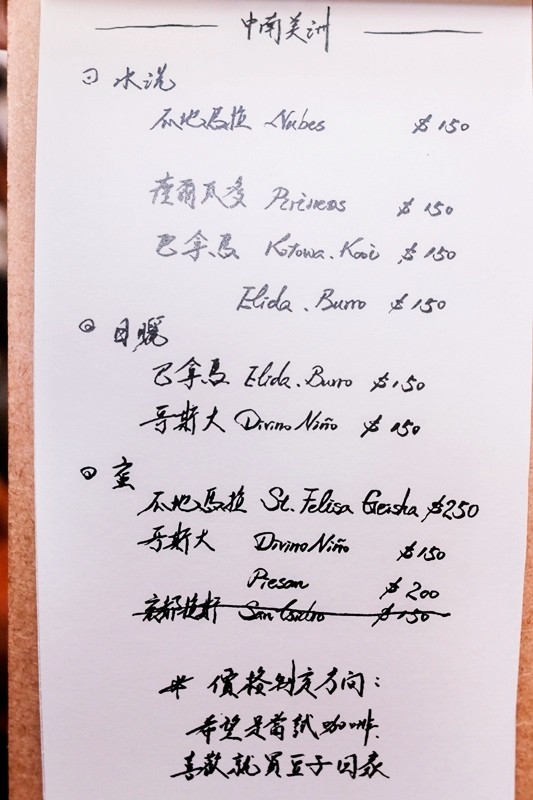 中南美洲
水洗
瓜地馬拉 Nubes $150
薩爾瓦多 Pirineos $150
巴拿馬 Kotowa.Kooi $150
Elida.Burro $150
日曬
巴拿馬 Elida.Burro $150
哥斯大 Divino Niño $150
蜜
瓜地馬拉 St. Felisa Geisha $250
哥斯大 Divino Niño $150
Piesan $200
宏都拉斯 San Isidro $150
* 價格制定方向:
希望是嘗試咖啡
喜歡就買豆子回家